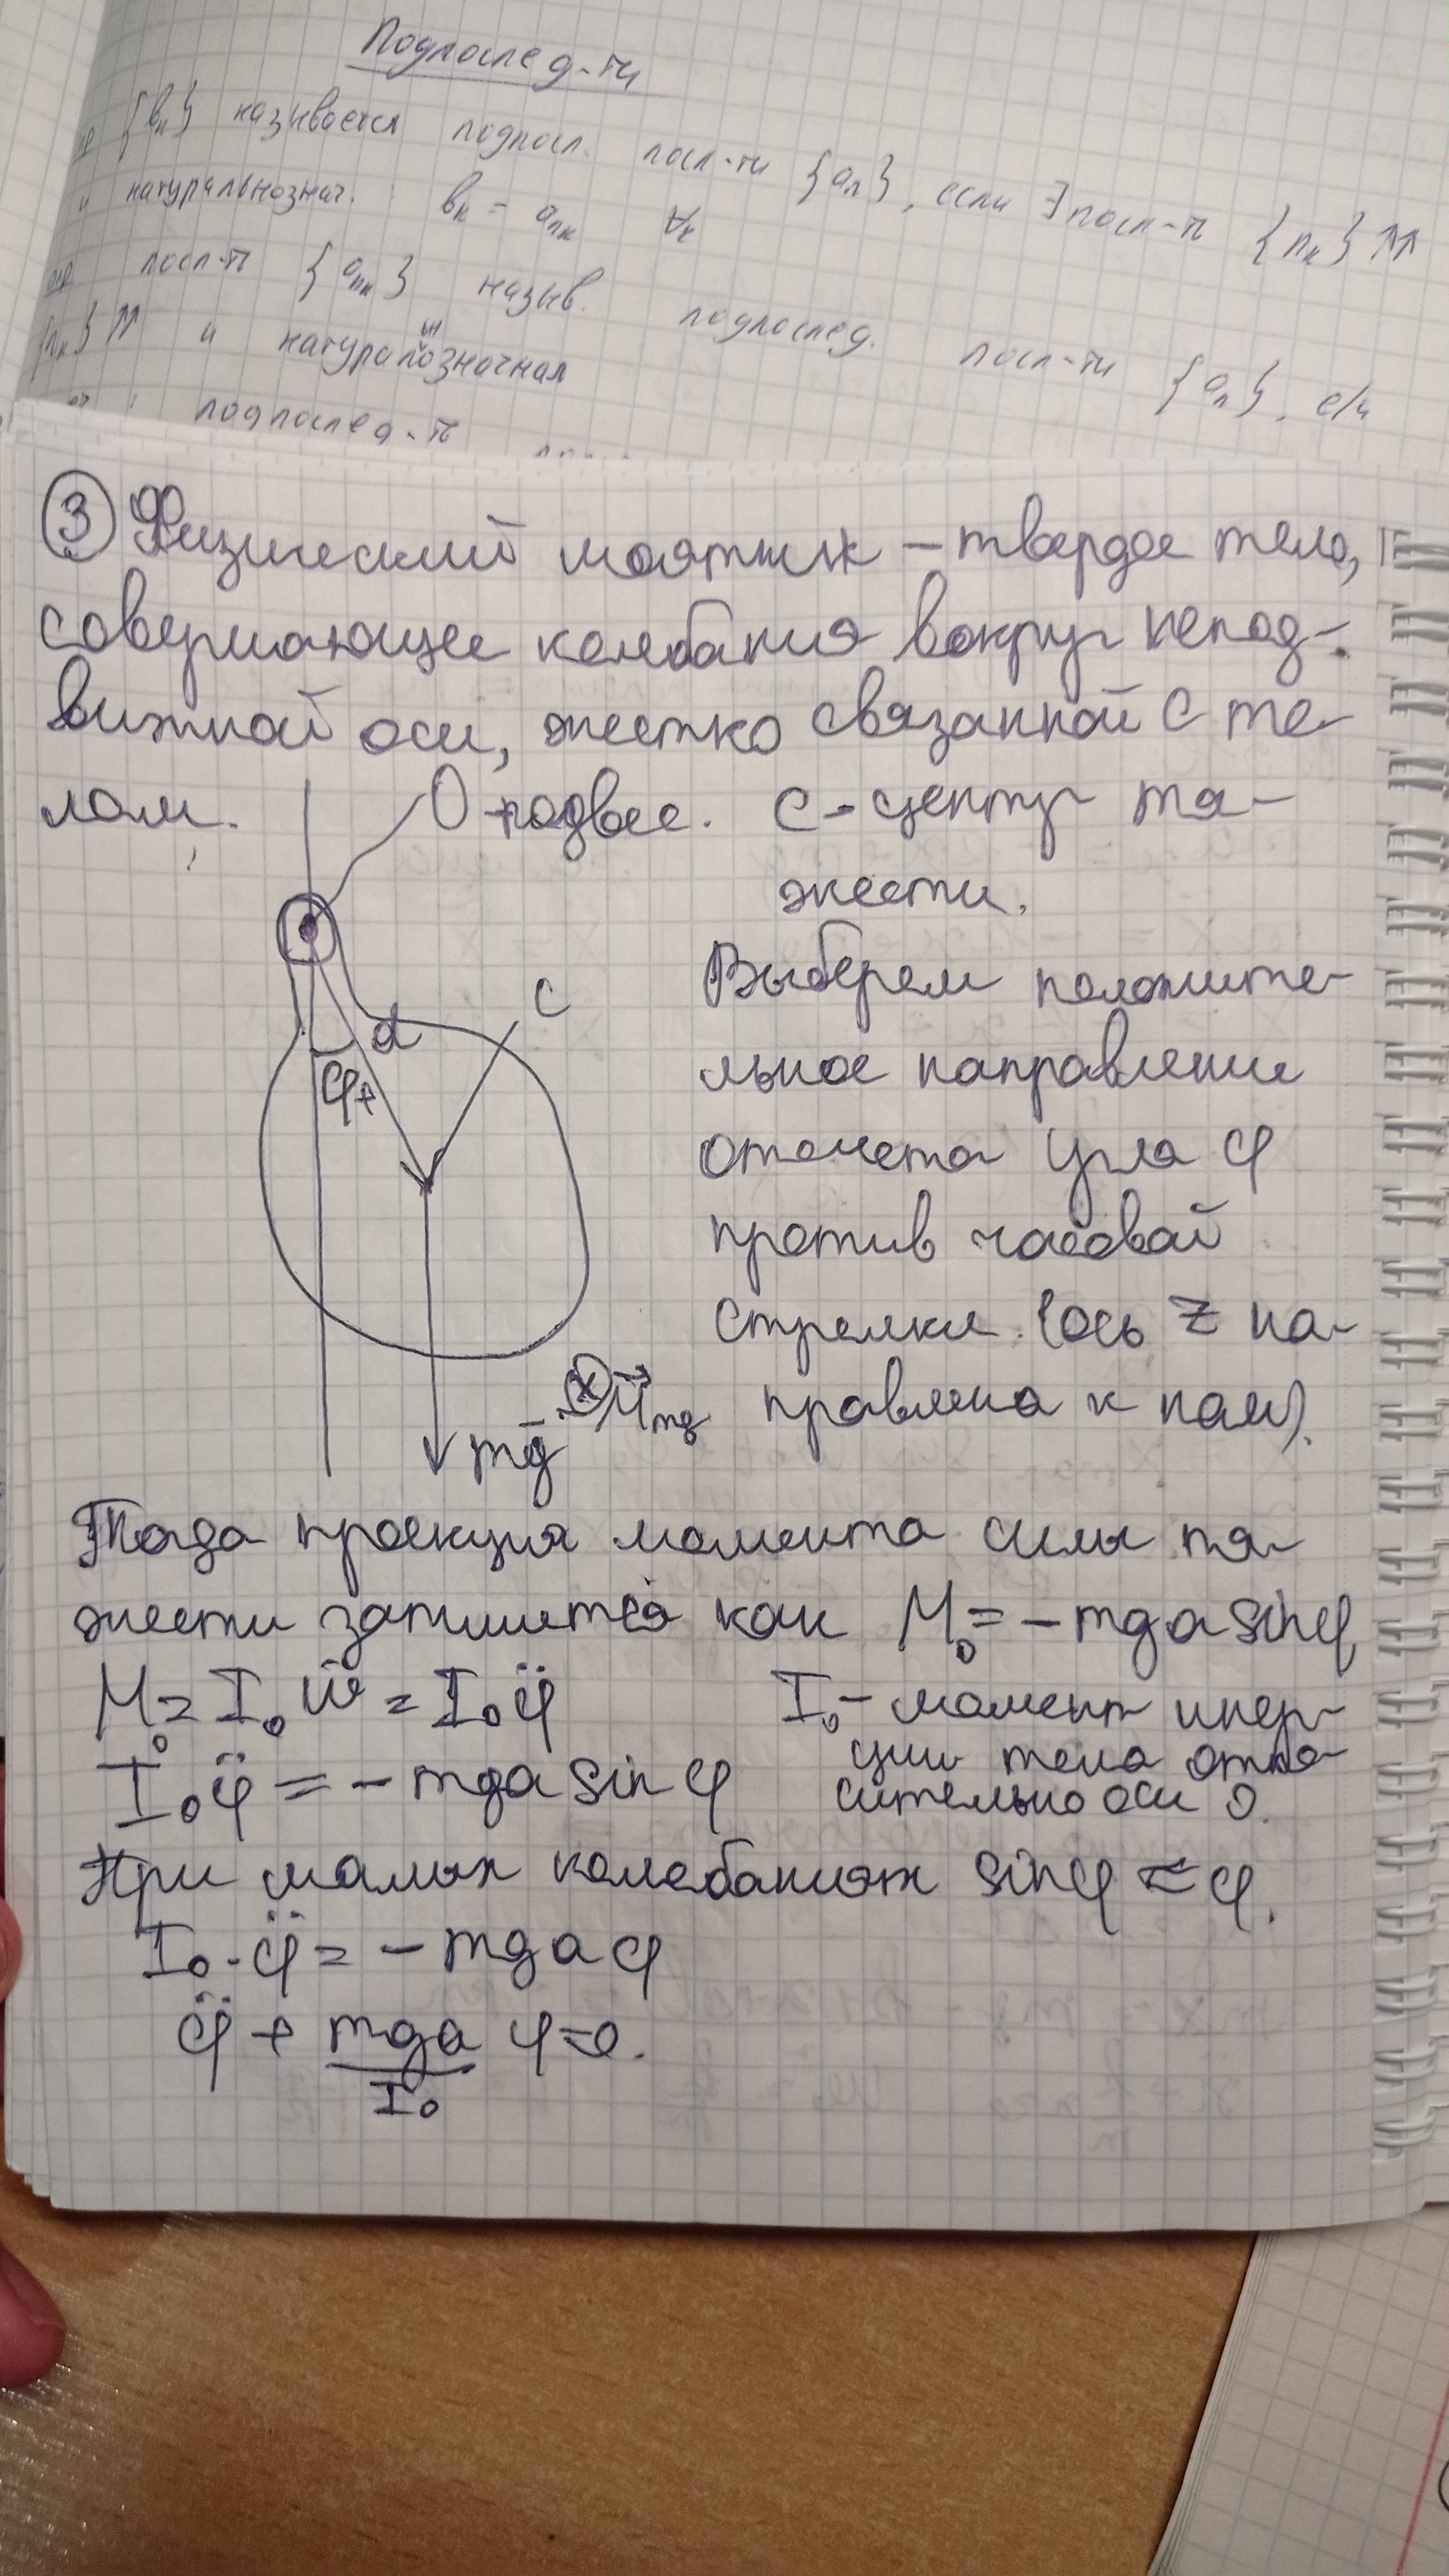 Подпослед-ти
{bₖ} называется подпосл. посл-ти {aₙ}, если ∃ посл-ть {nₖ}⇈
и натуральнознач. : bₖ = aₙₖ ∀ₖ
посл-ть {aₙₖ} назыв. подпослед. посл-ти {aₙ}, если
{nₖ}⇈ и натуральнозначная
подпослед-ть
③ Физический маятник – твердое тело,
совершающее колебания вокруг непод-
вижной оси, жестко связанной с те-
лом.
O – подвес. C – центр тя-
жести.
Выберем положите-
льное направление
отсчета угла φ
против часовой
стрелки. (ось z на-
правлена к нам).
a
C
φ+
mg
⊗ M⃗mg
Тогда проекция момента силы тя-
жести запишется как M₀ = – mga sinφ
M₀ = I₀ ẅ = I₀ φ̈
I₀ – момент инер-
ции тела отно-
сительно оси O.
I₀φ̈ = – mga sin φ
При малых колебаниях sinφ ≈ φ.
I₀ · φ̈ = – mga φ
φ̈ + mga/I₀ φ = 0.